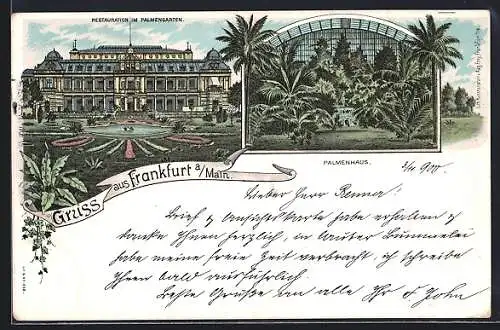 RESTAURATION IM PALMENGARTEN.
PALMENHAUS.
Gruss aus Frankfurt a/Main.
2/4 900.
Lieber Herr Renner!
Brief & Ansichtskarte habe erhalten &
danke Ihnen herzlich, in lauter Bummelei
habe meine freie Zeit verbracht, ich schreibe
Ihnen bald ausführlich.
Beste Grüße an alle Ihr John